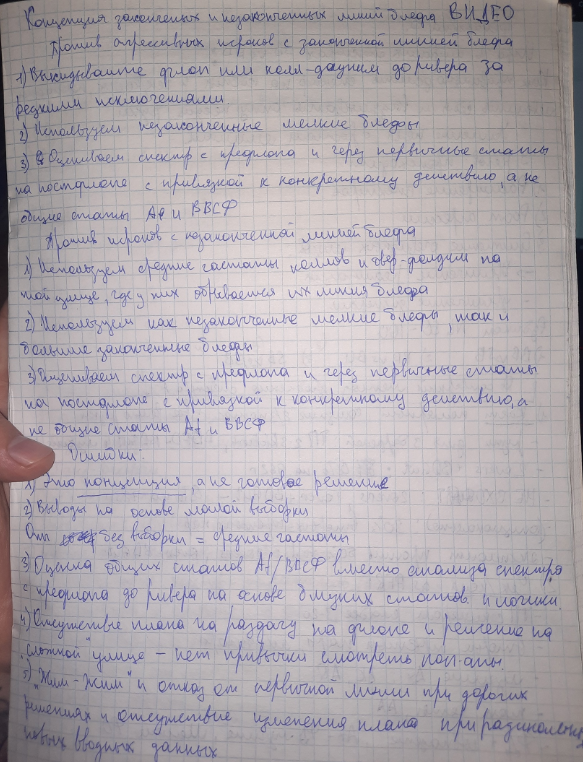 Концепция законченых и незаконченных линий блефа ВИДЕО
Против агрессивных игроков с законченной линией блефа
1) Выкидывайте флоп или колл-дауним до ривера за
редкими исключениями
2) Используем незаконченные мелкие блефы
3) Оцениваем спектр с префлопа и через первичные статы
на постфлопе с привязкой к конкретному действию, а не
общие статы Af и ВВСФ
Против игроков с незаконченной линией блефа
1) Используем средние частоты коллов и овер-фолдим на
той улице, где у них обрывается их линия блефа
2) Используем как незаконченные мелкие блефы, так и
большие законченные блефы
3) Оцениваем спектр с префлопа и через первичные статы
на постфлопе с привязкой к конкретному действию, а
не общие статы Af и ВВСФ
Ошибки:
1) Это концепция, а не готовое решение
2) Выводы на основе малой выборки
Опп без выборки = средние частоты
3) Оценка общих статов Af/ВВСФ вместо анализа спектра
с префлопа до ривера на основе близких статов и логики.
4) Отсутствие плана на раздачу на флопе и решение на
"сложной" улице - нет привычки смотреть поп-апы
5) "Жим-Жим" и отказ от первичной линии при дорогих
решениях и отсутствие изменения плана при радикально
новых вводных данных